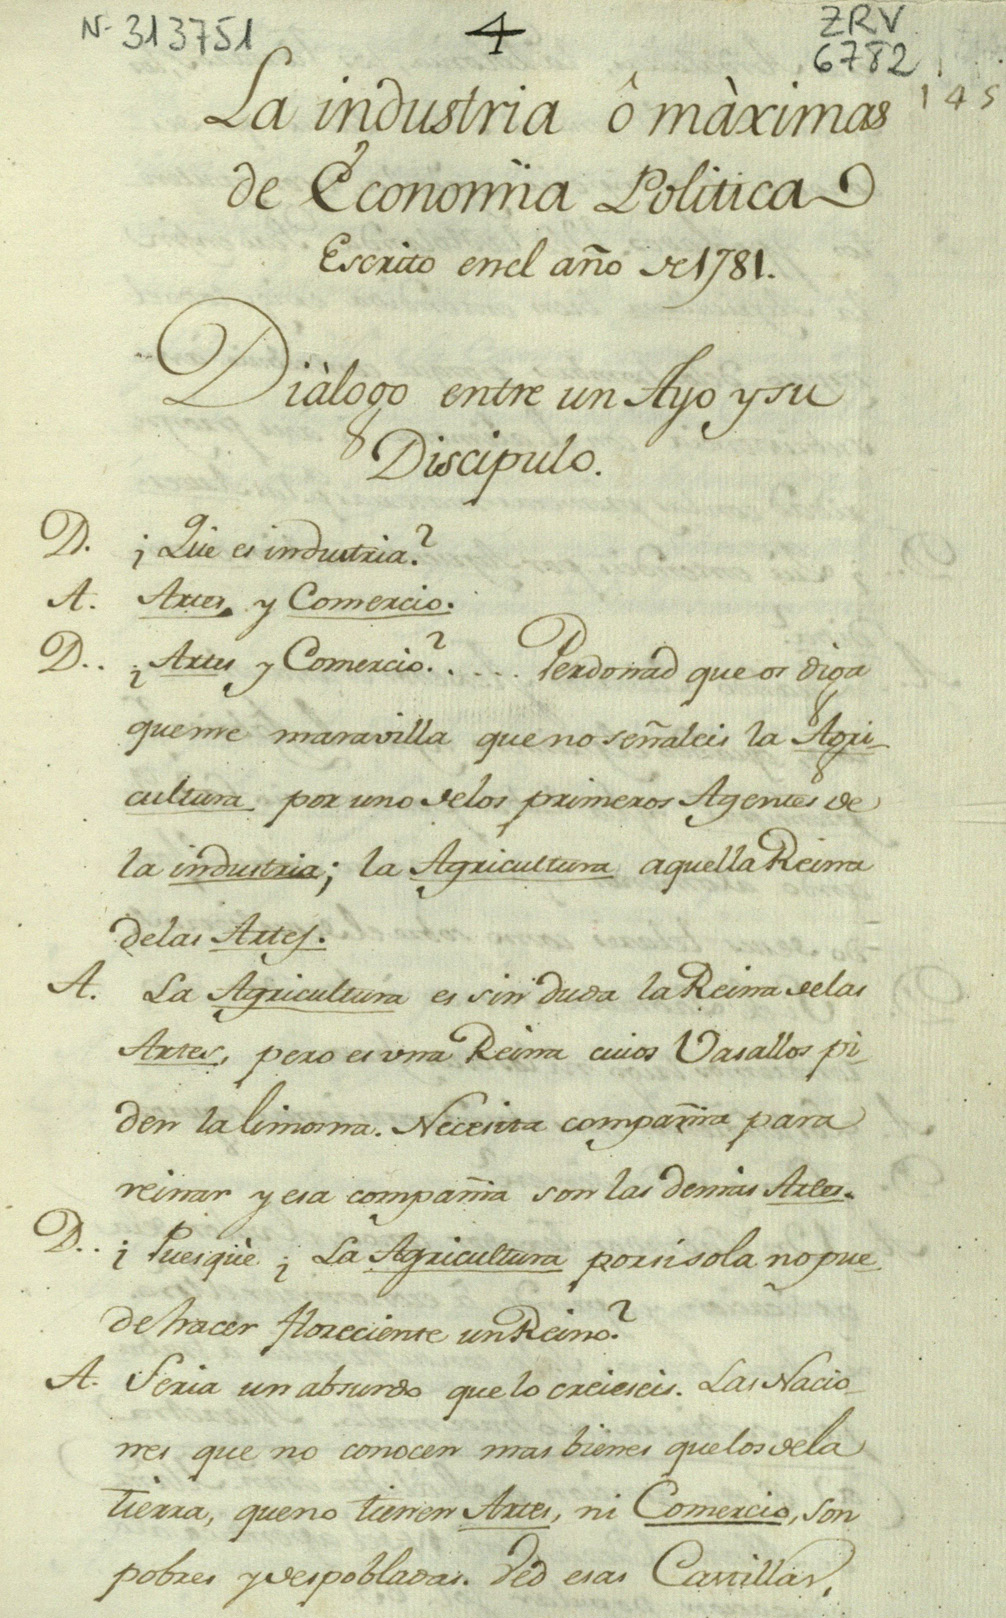 N- 313751
4
ZRV
6782
145
La industria ô màximas
de Economìa Politica
Escrito enel año de 1781.
Diàlogo entre un Ayo y su
Discipulo.
D. ¿Qüe es industria?
A. Artes, y Comercio.
D.. ¿Artes y Comercio?.... Perdonad que os diga
queme maravilla que no señaleis la Agri-
cultura por uno delos primeros Agentes de
la industria; la Agricultura aquella Reina
delas Artes.
A. La Agricultura es sin duda la Reina delas
Artes, pero es una Reina cuios Vasallos pi-
den la limosna. Necesita compañia para
reinar y esa compañia son las demas Artes.
D.. ¿Puesqüe ¿La Agricultura porsisola no pue-
de hacer floreciente un Reino?
A. Seria un absurdo que lo creieseis. Las Nacio-
nes que no conocen mas bienes que los dela
tierra, queno tienen Artes, ni Comercio, son
pobres y despobladas. Ved esas Castillas,